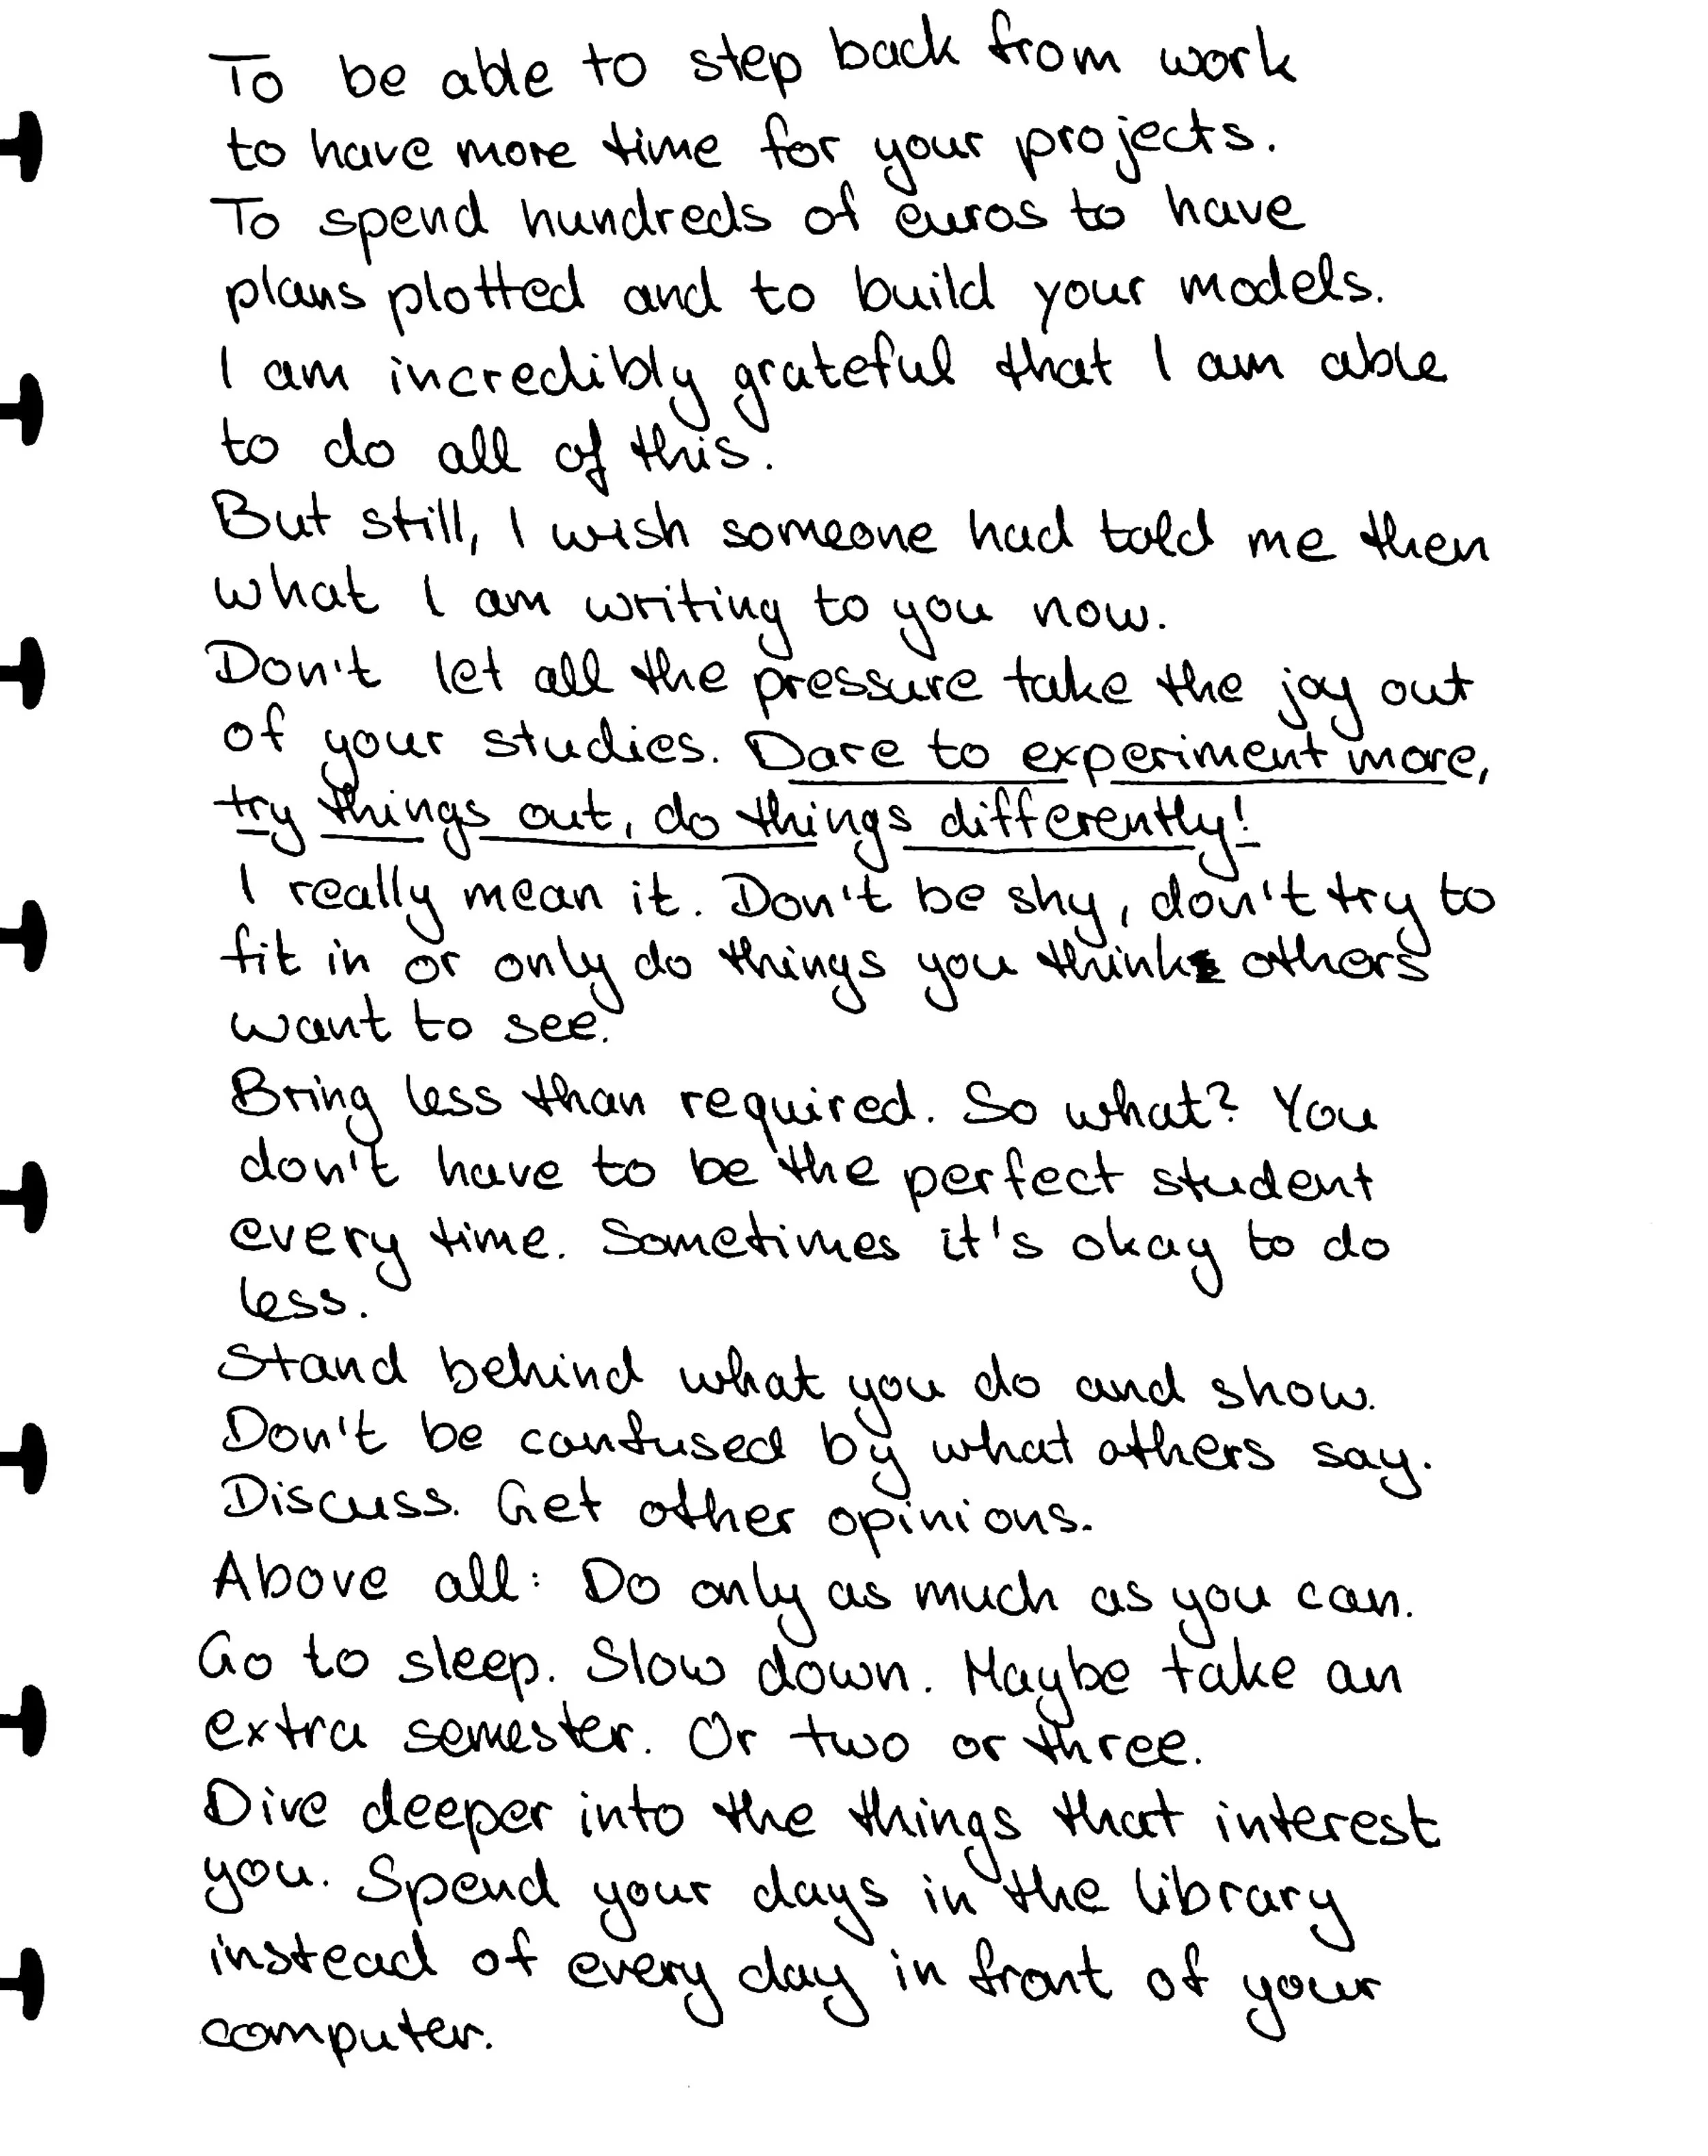 To be able to step back from work
to have more time for your projects.
To spend hundreds of euros to have
plans plotted and to build your models.
I am incredibly grateful that I am able
to do all of this.
But still, I wish someone had told me then
what I am writing to you now.
Don't let all the pressure take the joy out
of your studies. Dare to experiment more,
try things out, do things differently!
I really mean it. Don't be shy, don't try to
fit in or only do things you think others
want to see.
Bring less than required. So what? You
don't have to be the perfect student
every time. Sometimes it's okay to do
less.
Stand behind what you do and show.
Don't be confused by what others say.
Discuss. Get other opinions.
Above all: Do only as much as you can.
Go to sleep. Slow down. Maybe take an
extra semester. Or two or three.
Dive deeper into the things that interest
you. Spend your days in the library
instead of every day in front of your
computer.